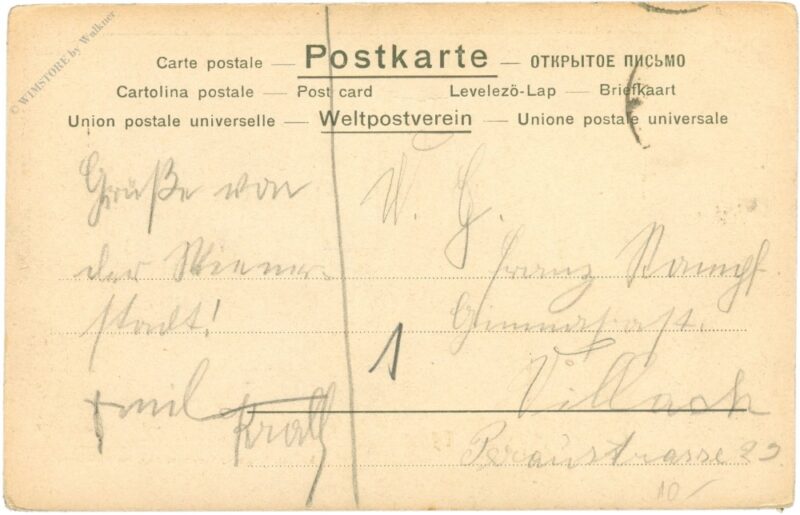 © WIMSTORE by Walkner
Carte postale — Postkarte — ОТКРЫТОЕ ПИСЬМО
Cartolina postale — Post card Levelezö-Lap — Briefkaart
Union postale universelle — Weltpostverein — Unione postale universale
Grüße von
der Wiener-
stadt!
Emil
W. G.
Franz Rampf
Villach
Peraustrasse 23
1
10/